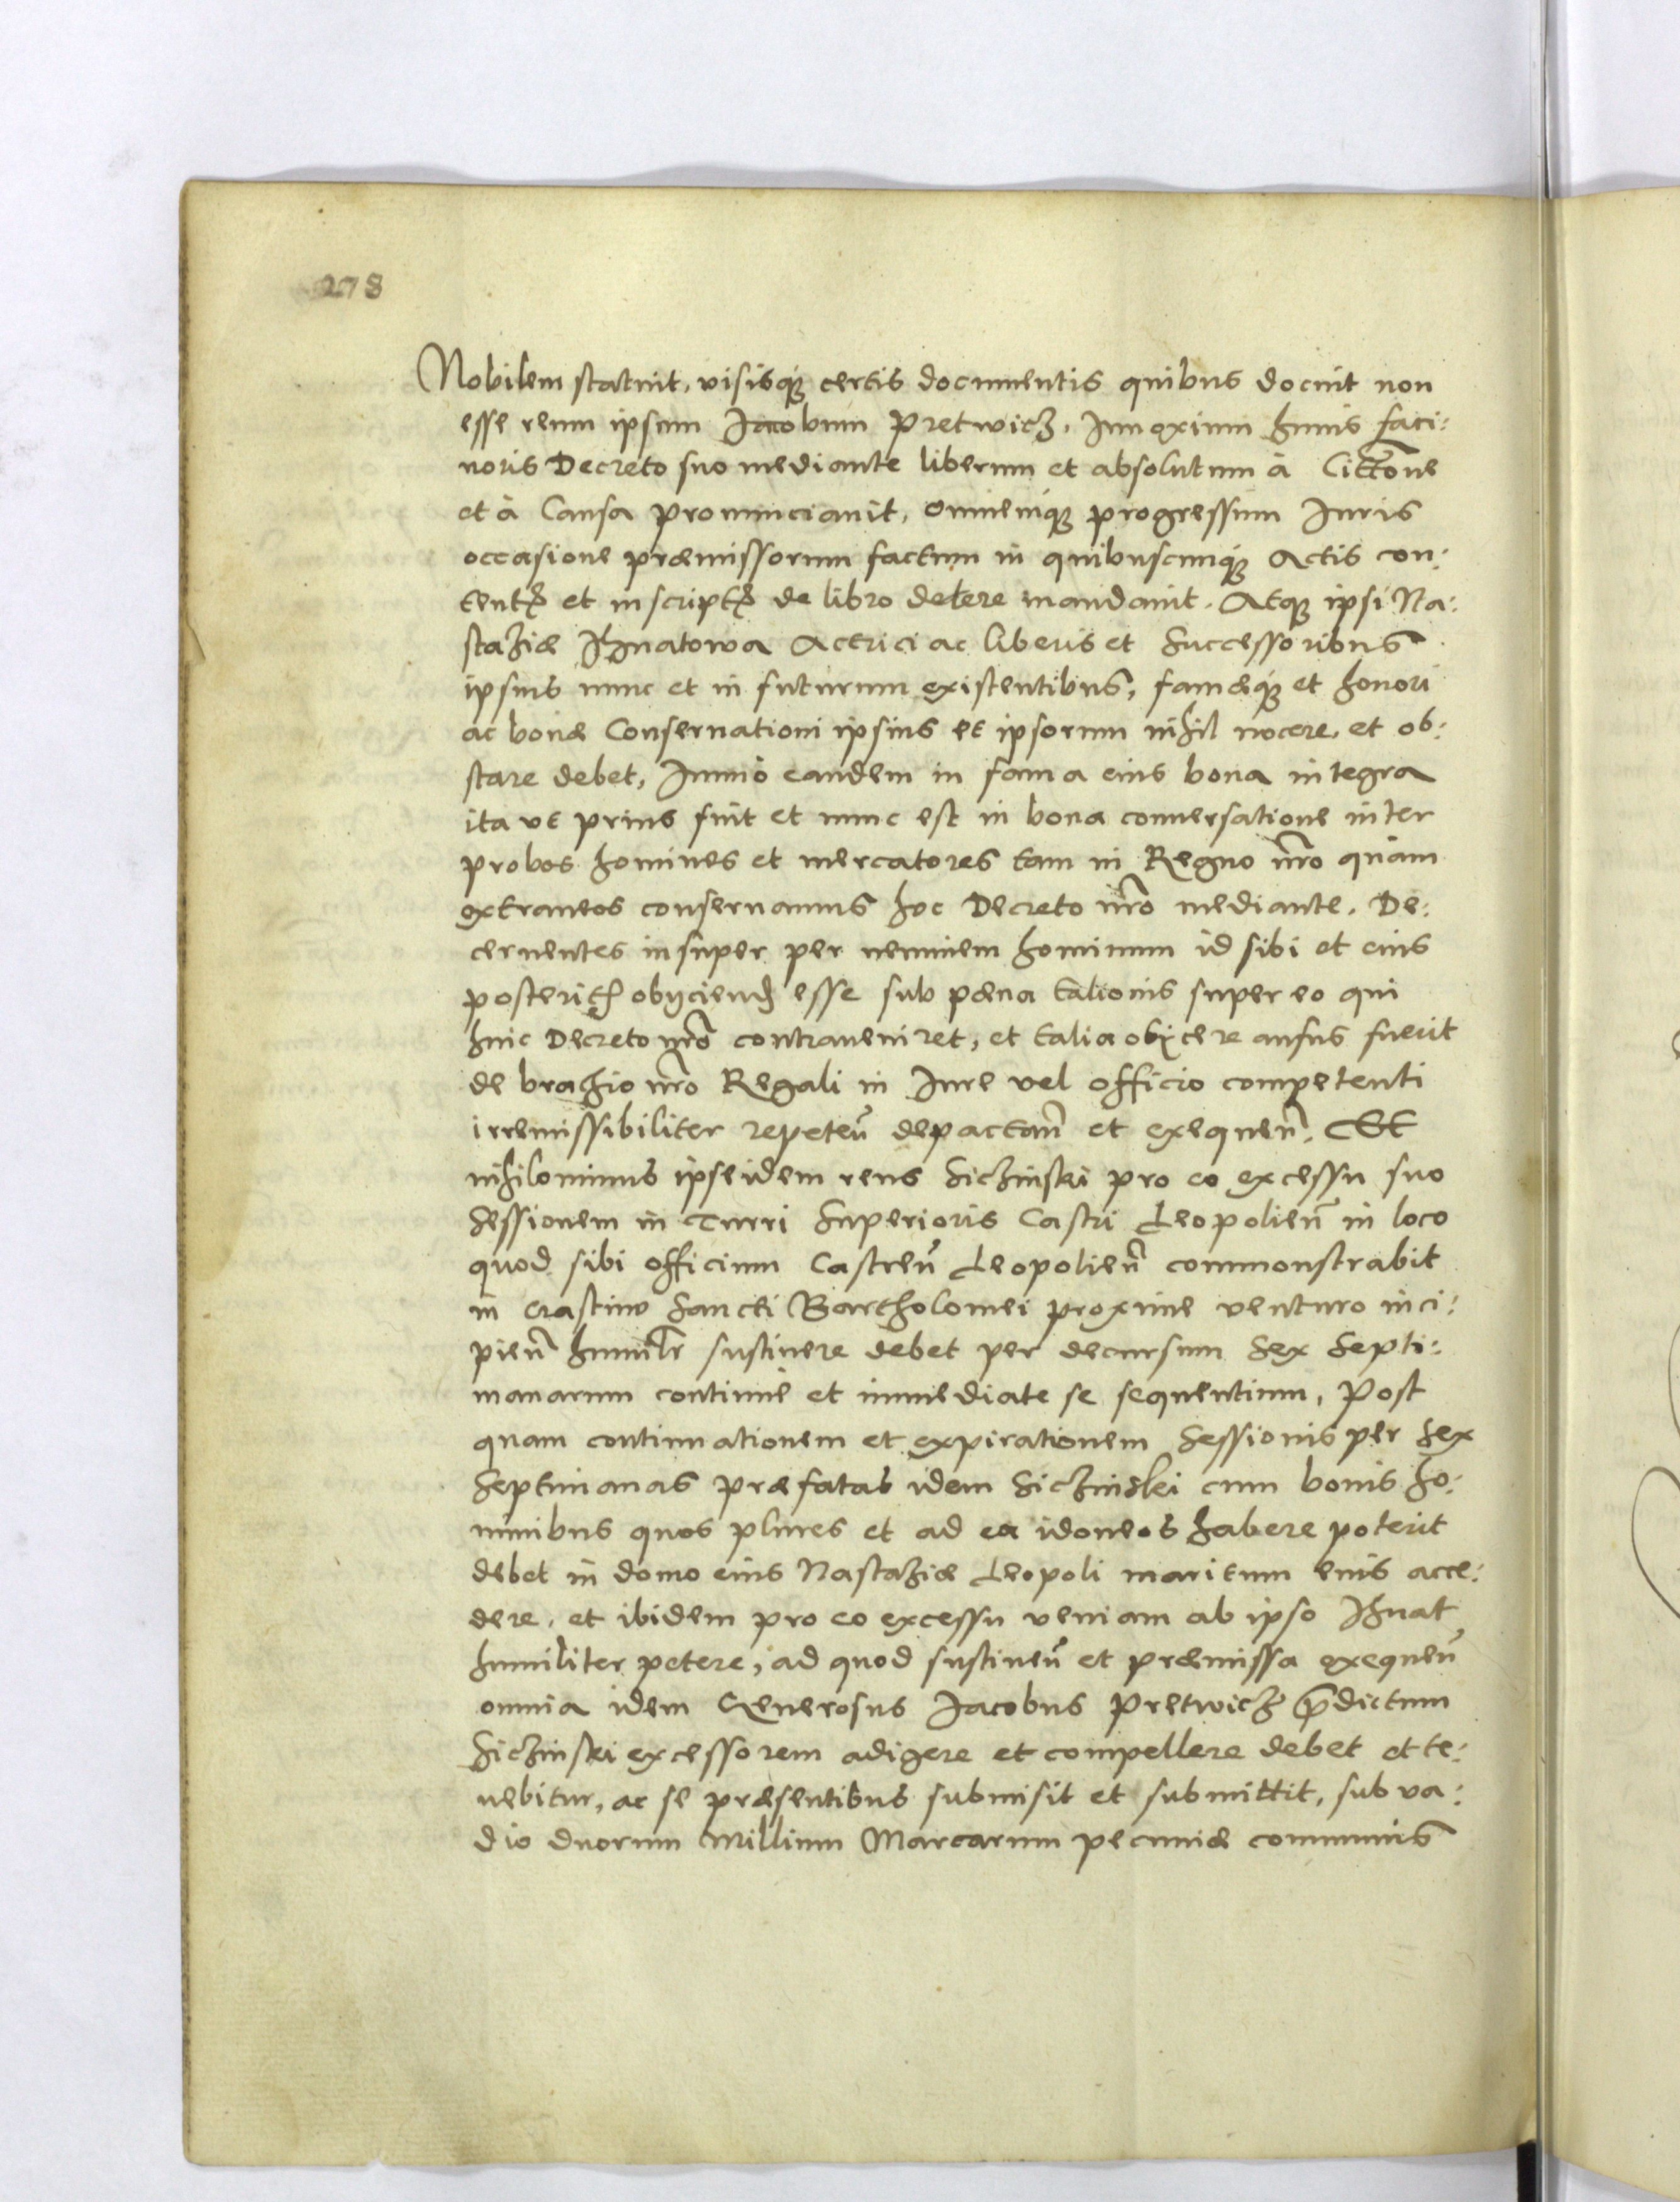 278
Nobilem statuit, visisq́ꝫ certis documentis quibus docuit non
esse reum ipsum Jacobum Pretwicz, Innoxium huius faci:
noris Decreto suo mediante liberum et absolutum à Citt̃one
et à Causa pronunciauit, omnemq́ꝫ progressum Iuris
occasione præmissorum factum in quibuscunq́ꝫ Actis con:
tent̃ et inscript̃ de libro delere mandauit. Atqꝫ ipsi Na:
staziæ Ihnatowa Actrici ac liberis et Successoribus
ipsius nunc et in futurum existentibus, famæq́ꝫ et honori
ac bonæ Conseruationi ipsius et ipsorum nihil nocere, et ob:
stare debet, Immò eandem in fama eius bona integra
ita vt prius fuit et nunc est in bona conuersatione inter
probos homines et mercatores tam in Regno nr̃o quàm
extraneos conseruamus hoc Decreto nr̃o mediante. De:
cernentes insuper per neminem hominum id sibi et eius
posterit̃ obijciend̃ esse sub pæna talionis super eo qui
huic Decreto nr̃o contraueniret, et talia obijcere ausus fuerit
de brachio nr̃o Regali in Iure vel officio competenti
irremissibiliter repeten̄ depactan̄ et exequen̄. Et
nihilominus ipseidem reus Siczinski pro eo excessu suo
sessionem in Turri Superioris Castri Leopolien̄ in loco
quod sibi officium Castren̄ Leopolien̄ commonstrabit
in crastino Sancti Bartholomei proxime venturo inci:
pien̄ humilr̃ sustinere debet per decursum Sex Septi:
manarum continuè et immediate se sequentium, Post
quam continuationem et expirationem Sessionis per Sex
Septimanas præfatas idem Siczinski cum bonis ho:
minibus quos plures et ad ea idoneos habere poterit
debet in domo eius Nastaziæ Leopoli maritum eius acce:
dere, et ibidem pro eo excessu veniam ab ipso Ihnat
humiliter petere, ad quod sustinen̄ et præmissa exequen̄
omnia idem Generosus Jacobus Pretwicz p̃dictum
Siczinski excessorem adigere et compellere debet et te:
nebitur, ac se præsentibus submisit et submittit, sub va:
dio duorum Millium Marcarum pecuniæ communis